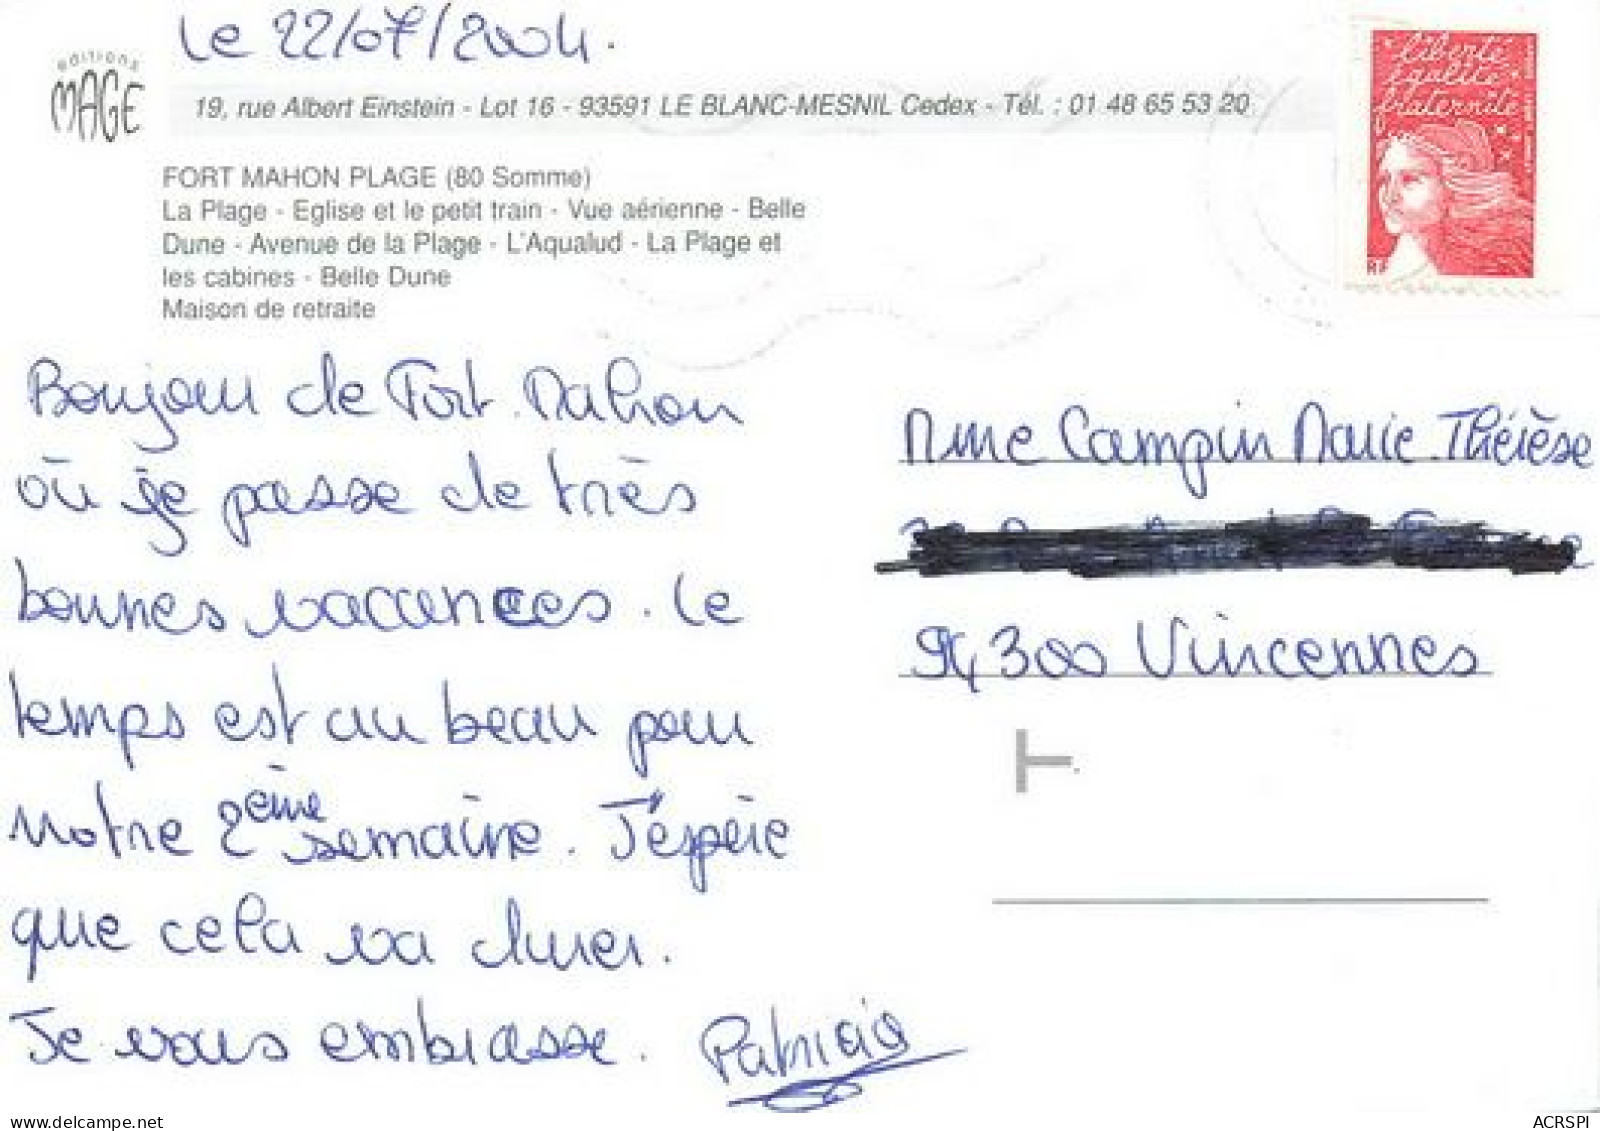 le 22/07/2004.
éditions
MAGE
19, rue Albert Einstein - Lot 16 - 93591 LE BLANC-MESNIL Cedex - Tél. : 01 48 65 53 20
liberté
égalité
fraternité
RF
FORT MAHON PLAGE (80 Somme)
La Plage - Eglise et le petit train - Vue aérienne - Belle
Dune - Avenue de la Plage - L'Aqualud - La Plage et
les cabines - Belle Dune
Maison de retraite
Bonjour de Fort Mahon
où je passe de très
bonnes vacances. Le
temps est au beau pour
notre 2ème semaine. J'espère
que cela va durer.
Je vous embrasse. Patricia
Mme Campin Marie Thérèse
94300 Vincennes
ACRSPI